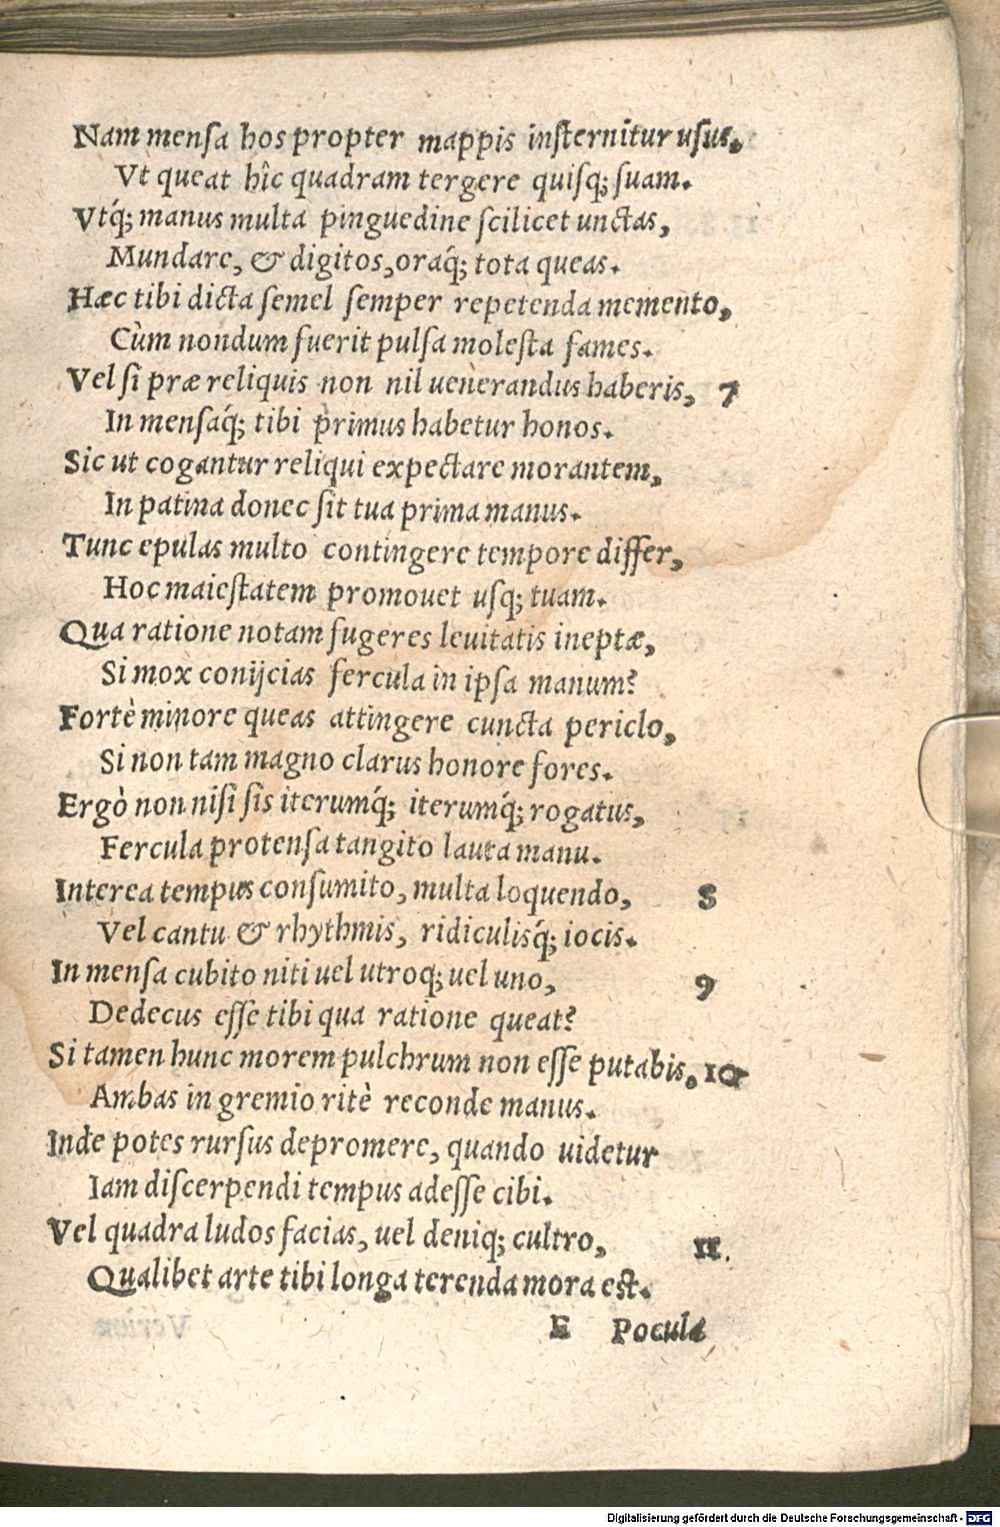 Nam mensa hos propter mappis insternitur usus,
Vt queat hîc quadram tergere quisq; suam.
Vtq́; manus multa pinguedine scilicet unctas,
Mundare, & digitos, oraq́; tota queas.
Hæc tibi dicta semel semper repetenda memento,
Cùm nondum fuerit pulsa molesta fames.
Vel si præ reliquis non nil uenerandus haberis, 7
In mensaq́; tibi primus habetur honos.
Sic ut cogantur reliqui expectare morantem,
In patina donec sit tua prima manus.
Tunc epulas multo contingere tempore differ,
Hoc maiestatem promouet usq; tuam.
Qua ratione notam fugeres leuitatis ineptæ,
Si mox conijcias fercula in ipsa manum?
Fortè minore queas attingere cuncta periclo,
Si non tam magno clarus honore fores.
Ergò non nisi sis iterumq́; iterumq́; rogatus,
Fercula protensa tangito lauta manu.
Interea tempus consumito, multa loquendo, 8
Vel cantu & rhythmis, ridiculisq́; iocis.
In mensa cubito niti uel utroq; uel uno, 9
Dedecus esse tibi qua ratione queat?
Si tamen hunc morem pulchrum non esse putabis, 10
Ambas in gremio ritè reconde manus.
Inde potes rursus depromere, quando uidetur
Iam discerpendi tempus adesse cibi.
Vel quadra ludos facias, uel deniq; cultro, 11.
Qualibet arte tibi longa terenda mora est.
E Pocula
Digitalisierung gefördert durch die Deutsche Forschungsgemeinschaft - DFG